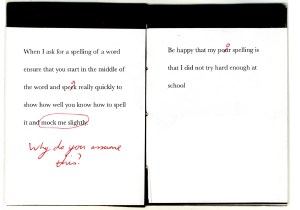 When I ask for a spelling of a word
ensure that you start in the middle of
the word and speak really quickly to
show how well you know how to spell
it and mock me slightly.
Why do you assume
this?
Be happy that my poor spelling is
that I did not try hard enough at
school